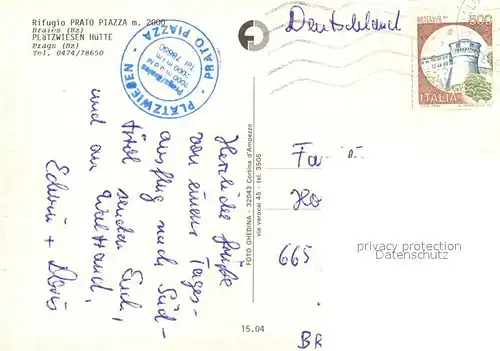 Rifugio PRATO PIAZZA m. 2000
Braies (Bz)
PLÄTZWIESEN HÜTTE
Prags (Bz)
Tel. 0474/78650
PRATO PIAZZA
PLÄTZWIESEN
Prags/Braies
2000 m ü.d.M.
2000 m s.l.m.
Tel. 78650
Deutschland
500
ITALIA
Herzliche Grüße
von einem Tages-
ausflug nach Süd-
tirol senden Euch,
und an Waltraud,
Edwin + Doris
FOTO GHEDINA - 32043 Cortina d'Ampezzo
via verocai 45 - tel. 3505
Fa
665
BR
privacy protection
Datenschutz
15.04